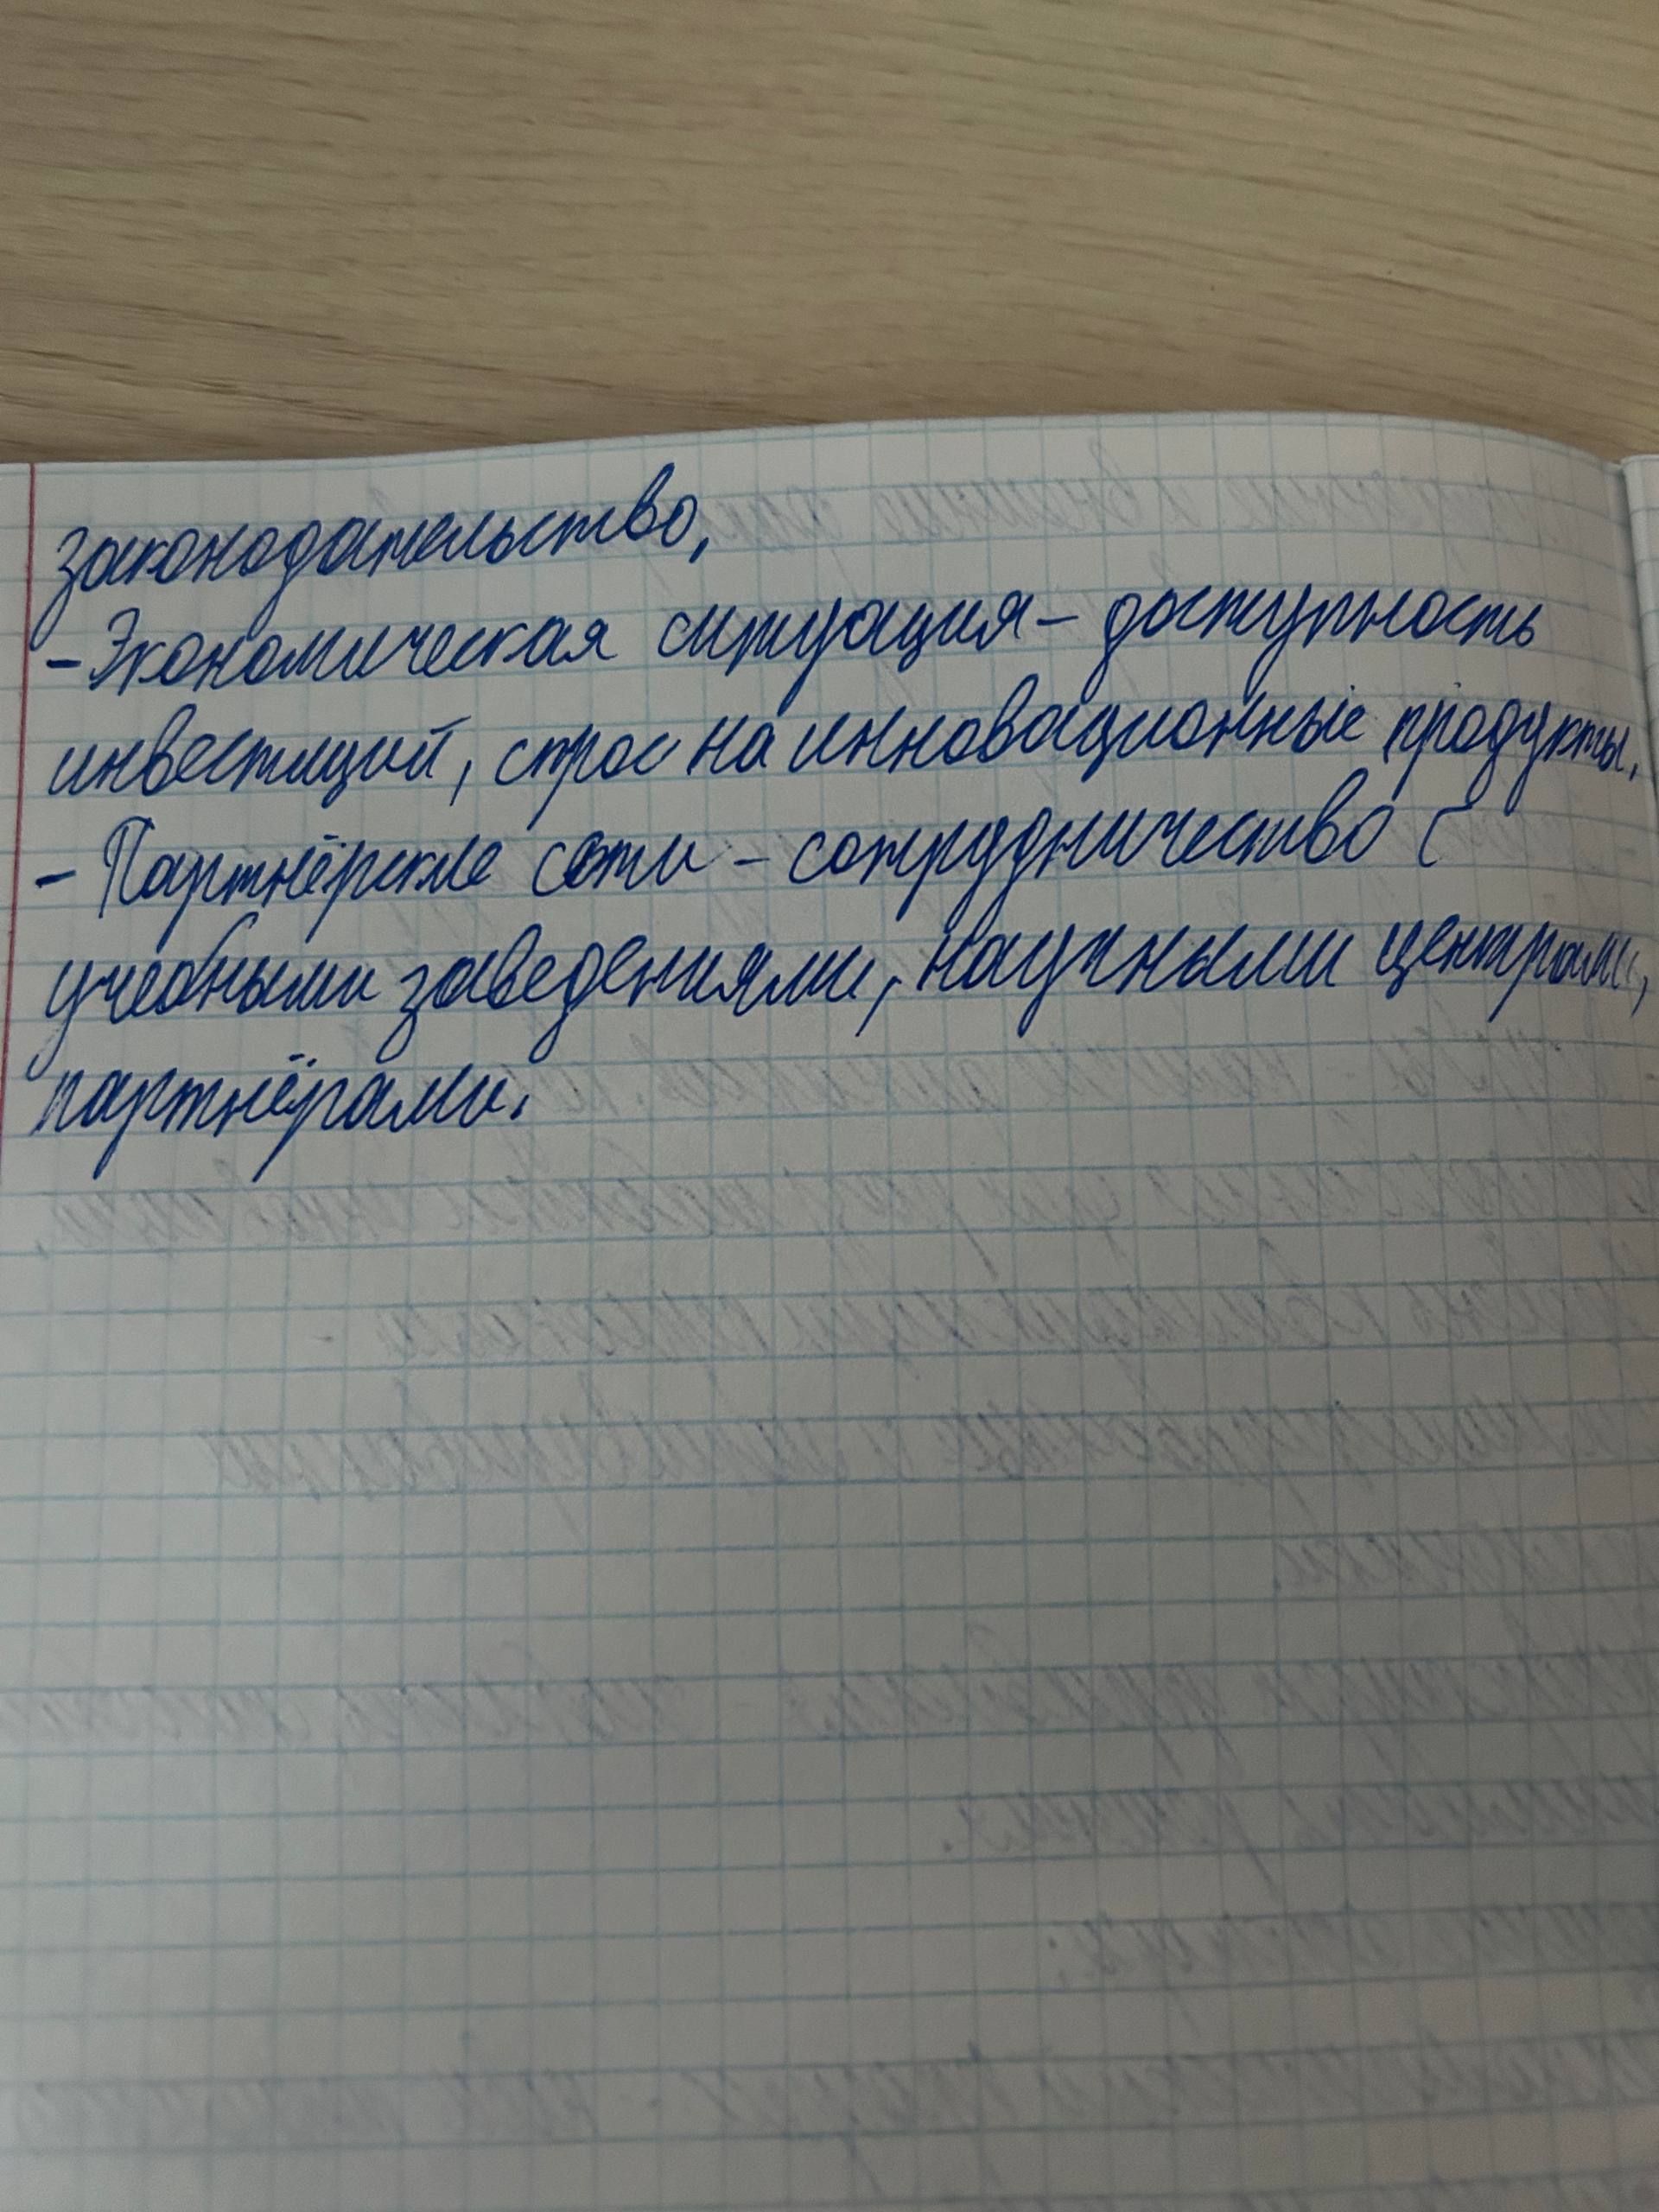 законодательство,
- Экономическая ситуация - доступность
инвестиций, спрос на инновационные продукты.
- Партнёрские сети - сотрудничество с
учебными заведениями, научными центрами,
партнёрами.